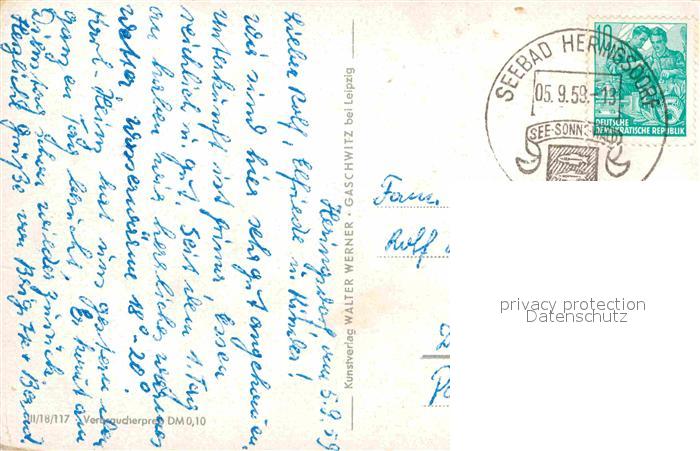 Heringsdorf, am 5.9.59
Lieber Rolf, Elfriede u. Kinder!
Wir sind hier sehr gut angekommen.
Unterkunft ist prima, Essen
reichlich u. gut. Seit dem 1. Tag
an haben wir herrliches warmes
Wetter Wasserwärme 18°-20°.
Karl-Heinz hat uns gestern den
ganzen Tag besucht. Er kommt am
Dienstag schon wieder zurück.
Herzliche Grüße von
III/18/117 Verbraucherpreis DM 0,10
Kunstverlag WALTER WERNER · GASCHWITZ bei Leipzig
SEEBAD HERINGSDORF
05.9.59.-13
SEE-SONNE
10
DEUTSCHE
DEMOKRATISCHE REPUBLIK
Fam.
Rolf
privacy protection
Datenschutz